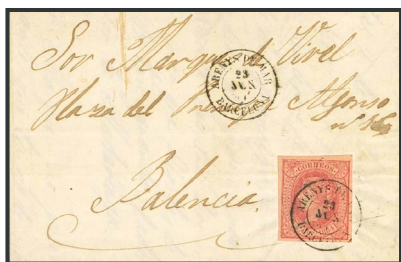 Sor Marques de Vivel
ARENYS DE MAR
23
JUN
BARCELONA
Plaza del Principe Alfonso
nº
Valencia
CORREOS
ARENYS DE
23
JUN
BARCELONA